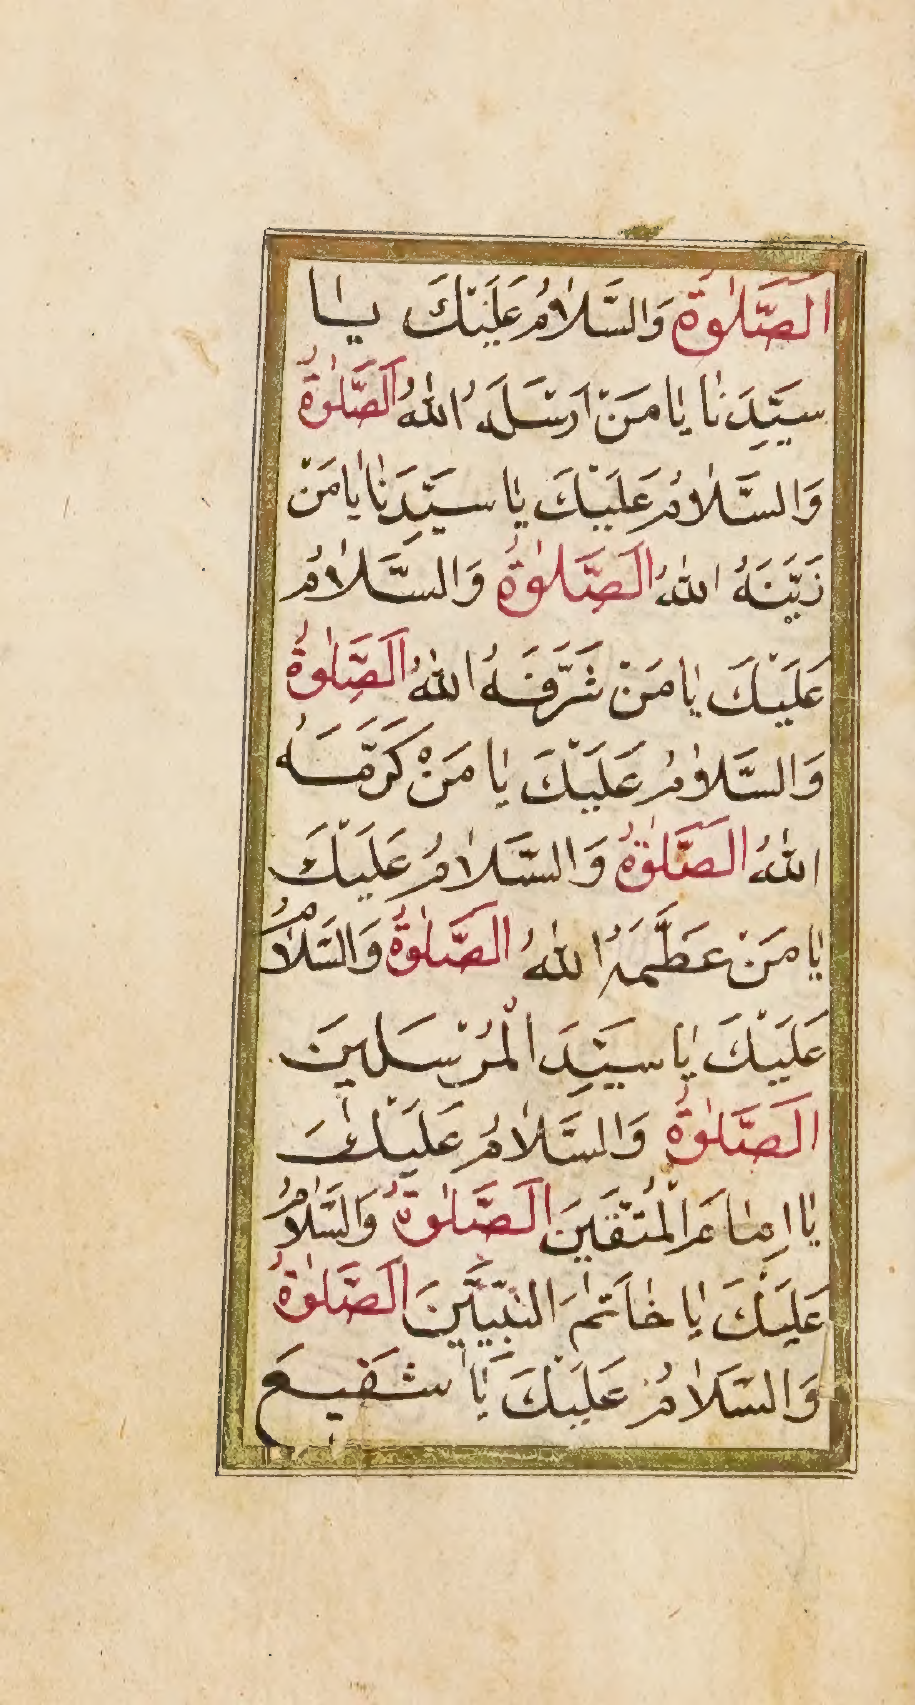 اَلصَّلٰوةُ وَالسَّلَامُ عَلَيْكَ يَا
سَيِّدَنَا يَا مَنْ اَرْسَلَهُ اللّٰهُ اَلصَّلٰوةُ
وَالسَّلَامُ عَلَيْكَ يَا سَيِّدَنَا يَا مَنْ
زَيَّنَهُ اللّٰهُ اَلصَّلٰوةُ وَالسَّلَامُ
عَلَيْكَ يَا مَنْ شَرَّفَهُ اللّٰهُ اَلصَّلٰوةُ
وَالسَّلَامُ عَلَيْكَ يَا مَنْ كَرَّمَهُ
اللّٰهُ اَلصَّلٰوةُ وَالسَّلَامُ عَلَيْكَ
يَا مَنْ عَظَّمَهُ اللّٰهُ اَلصَّلٰوةُ وَالسَّلَامُ
عَلَيْكَ يَا سَيِّدَ الْمُرْسَلِينَ
اَلصَّلٰوةُ وَالسَّلَامُ عَلَيْكَ
يَا اِمَامَ الْمُتَّقِينَ اَلصَّلٰوةُ وَالسَّلَامُ
عَلَيْكَ يَا خَاتَمَ النَّبِيِّينَ اَلصَّلٰوةُ
وَالسَّلَامُ عَلَيْكَ يَا شَفِيعَ